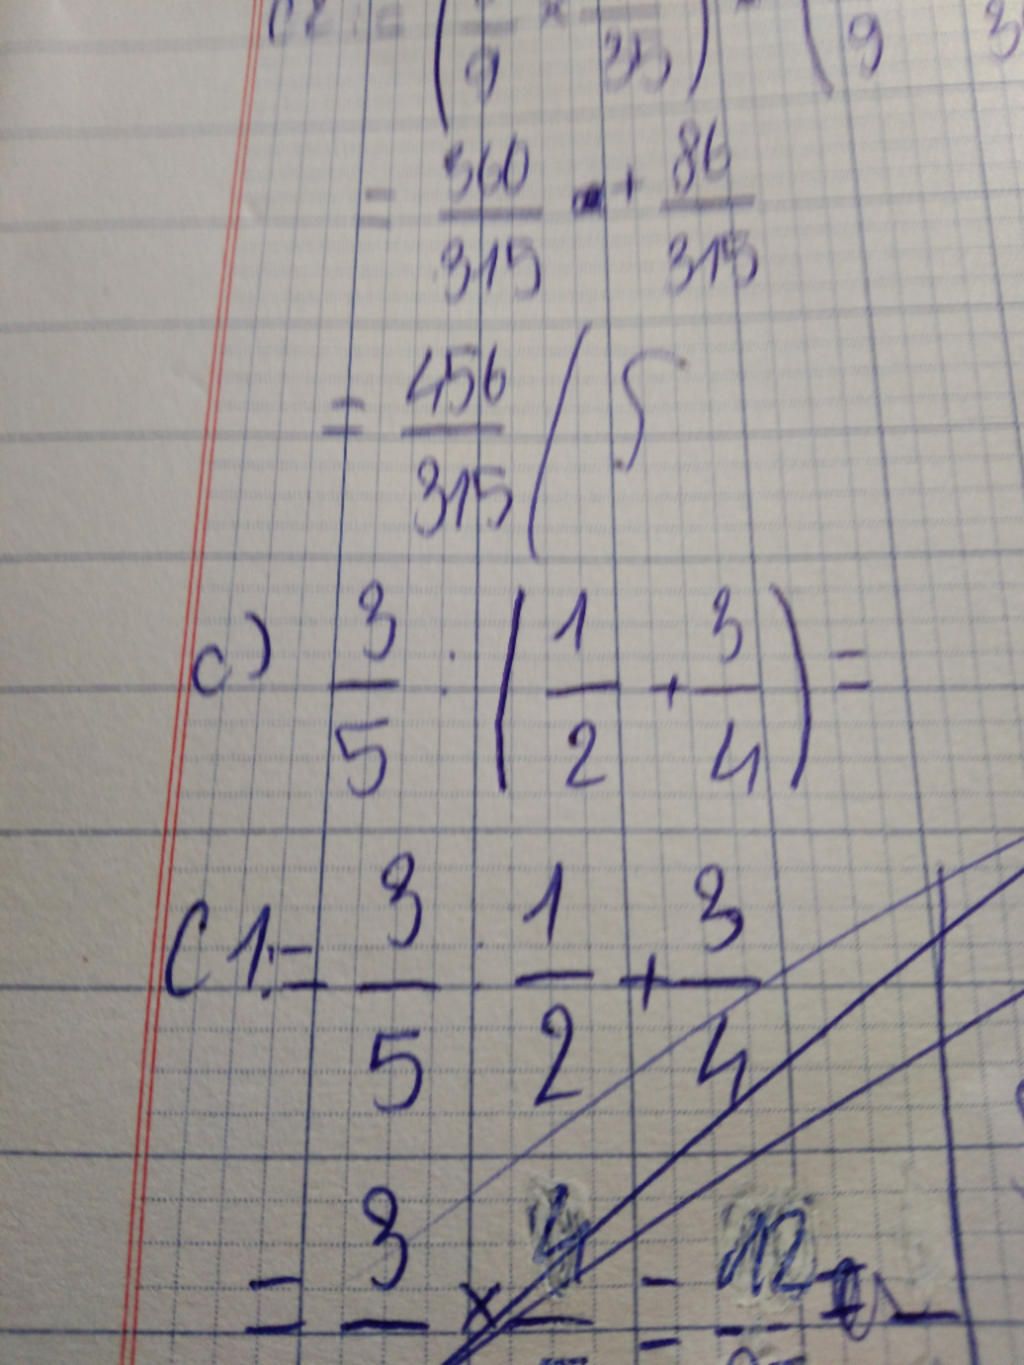 C2: = (/9 × /35) - (/9 3
= 360/315 - + 86/315
= 456/315 / S
c) 3/5 : (1/2 + 3/4) =
C1: = 3/5 : 1/2 + 3/4
= 3/ × 4/ = 12/